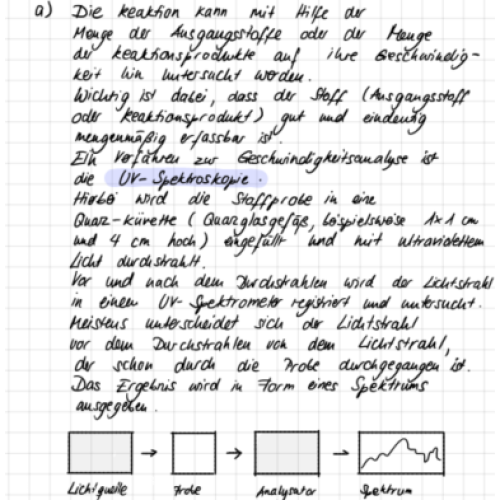 a) Die Reaktion kann mit Hilfe der
Menge der Ausgangsstoffe oder der Menge
der Reaktionsprodukte auf ihre Geschwindig-
keit hin untersucht werden.
Wichtig ist dabei, dass der Stoff (Ausgangsstoff
oder Reaktionsprodukt) gut und eindeutig
mengenmäßig erfassbar ist.
Ein Verfahren zur Geschwindigkeitsanalyse ist
die UV-Spektroskopie.
Hierbei wird die Stoffprobe in eine
Quarz-Küvette (Quarzglasgefäß, beispielsweise 1×1 cm
und 4 cm hoch) eingefüllt und mit ultraviolettem
Licht durchstrahlt.
Vor und nach dem Durchstrahlen wird der Lichtstrahl
in einem UV-Spektrometer registriert und untersucht.
Meistens unterscheidet sich der Lichtstrahl
vor dem Durchstrahlen von dem Lichtstrahl,
der schon durch die Probe durchgegangen ist.
Das Ergebnis wird in Form eines Spektrums
ausgegeben.
Lichtquelle Probe Analysator Spektrum